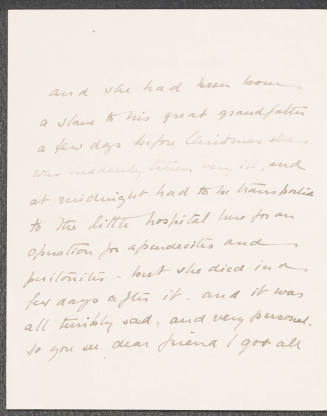 and she had been born
a slave to his great grandfather
a few days before Christmas she
was suddenly taken very ill, and
at midnight had to be transported
to the little hospital here for an
operation for apendecites and
peritonites - but she died in a
few days after it - and it was
all terribly sad, and very personal.
So you see dear friend I got all